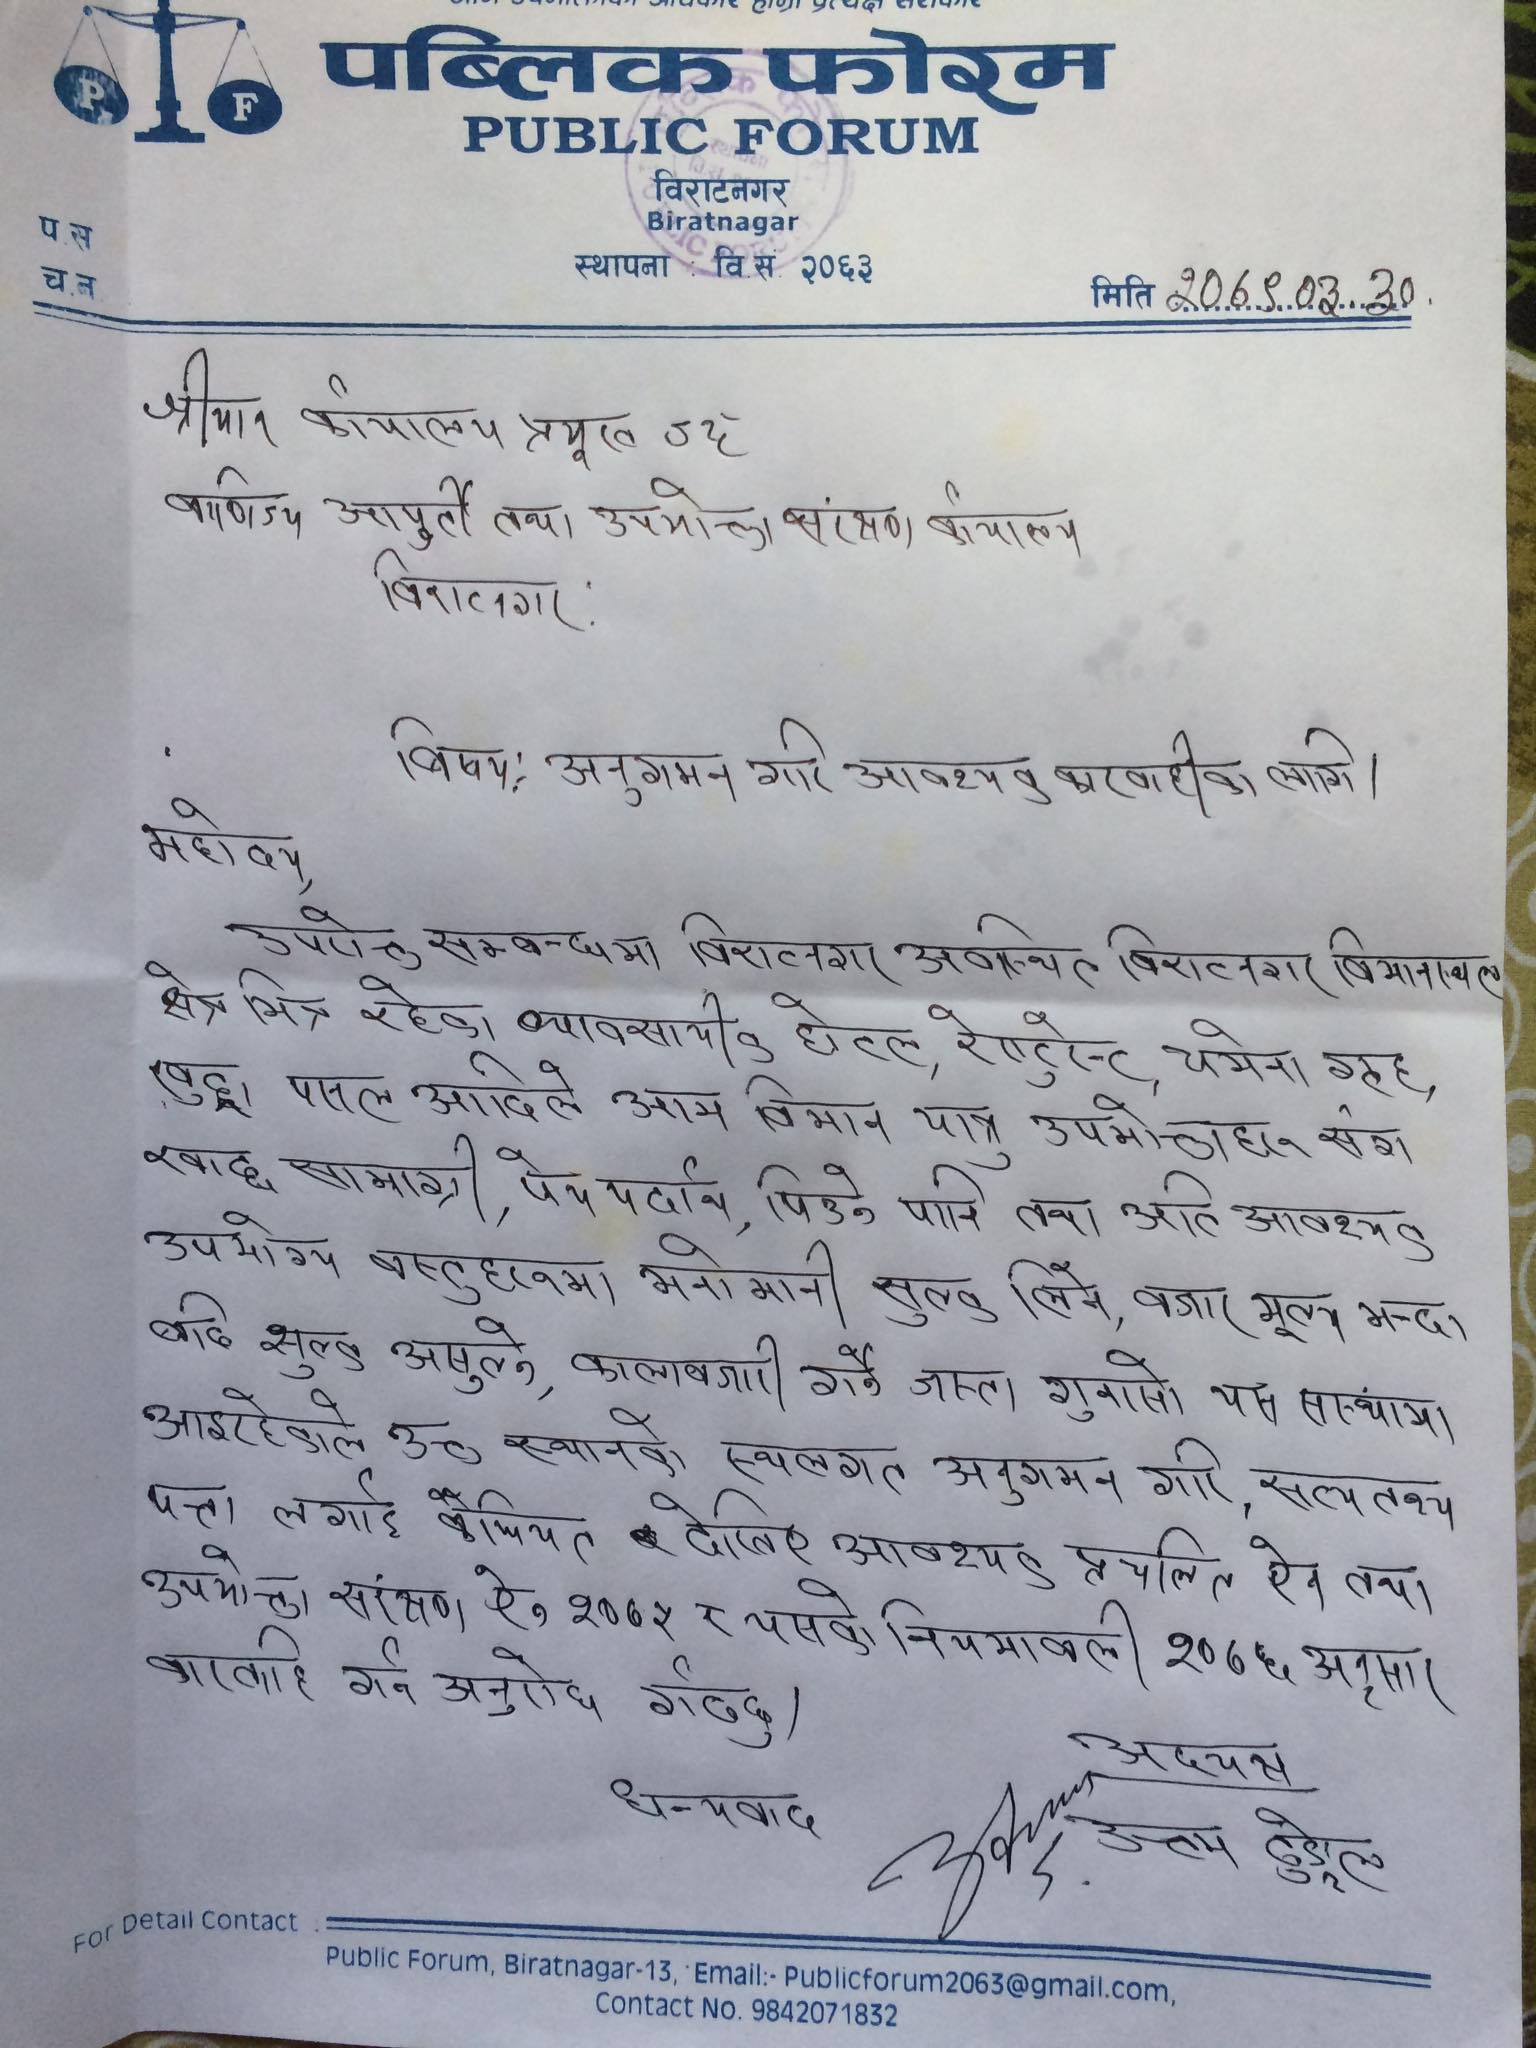 पब्लिक फोरम
PUBLIC FORUM
विराटनगर
Biratnagar
प.स
च.न
स्थापना : वि.सं. २०६३
मिति २०७९.०३.३०.
श्रीमान कार्यालय प्रमूख ज्यू
वाणिज्य आपुर्ती तथा उपभोक्ता संरक्षण कार्यालय
विराटनगर
विषय: अनुगमन गरि आवश्यक कारवाहीका लागि।
महोदय,
उपरोक्त सम्बन्धमा विराटनगर अवस्थित विराटनगर विमानस्थल
क्षेत्र भित्र रहेका व्यावसायीक होटल, रेष्टुरेन्ट, चमेना गृह,
खुद्रा पसल आदिले आम विमान यात्रु उपभोक्ताहरु संग
खाद्य सामाग्री, पेय पर्दाथ, पिउने पानि तथा अति आवश्यक
उपभोग्य वस्तुहरुमा मनोमानी सुल्क लिने, वजार मूल्य भन्दा
बढि शुल्क असुल्ने, कालाबजारी गर्ने जस्ता गुनासो यस सस्थामा
आइरहेकोले उक्त स्थानको स्थलगत अनुगमन गरि, सत्यतथ्य
पत्ता लगाई कैफियत देखिए आवश्यक प्रचलित ऐन तथा
उपभोक्ता संरक्षण ऐन २०७५ र यसको नियमावली २०७६ अनुसार
कारवाहि गर्न अनुरोध गर्दछु।
धन्यवाद
अध्यक्ष
उत्तम दुङ्गेल
For Detail Contact :
Public Forum, Biratnagar-13, Email:- Publicforum2063@gmail.com,
Contact No. 9842071832